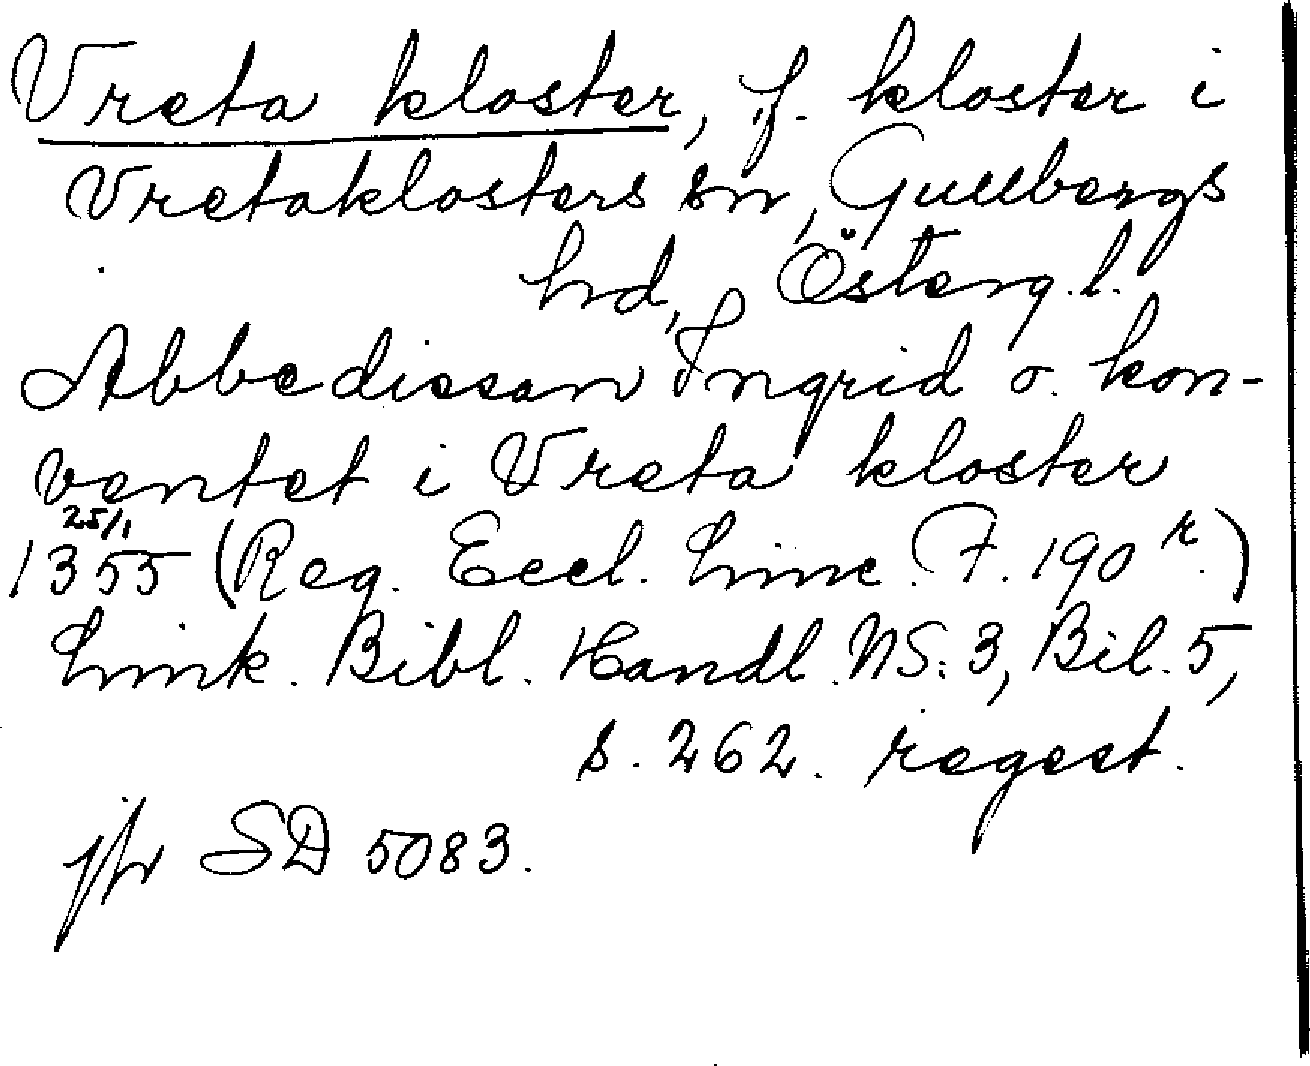 Vreta kloster, f. kloster i
Vretaklosters sn, Gullbergs
hd, Österg.l.
Abbedissan Ingrid o. kon-
ventet i Vreta kloster
25/1
1355 (Reg. Eccl. Linc. F. 190 r.)
Link. Bibl. Handl. NS: 3, Bil. 5,
s. 262. regest.
jfr SD 5083.